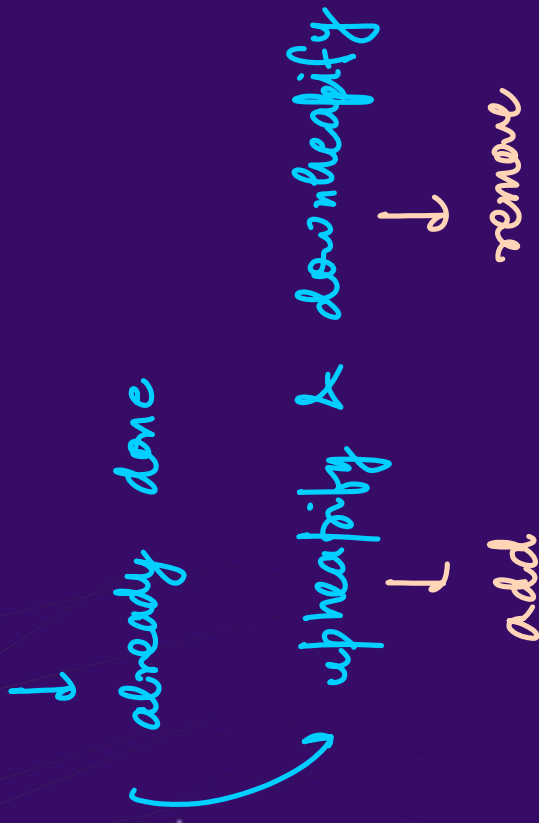 already done
upheapify & downheapify
add remove